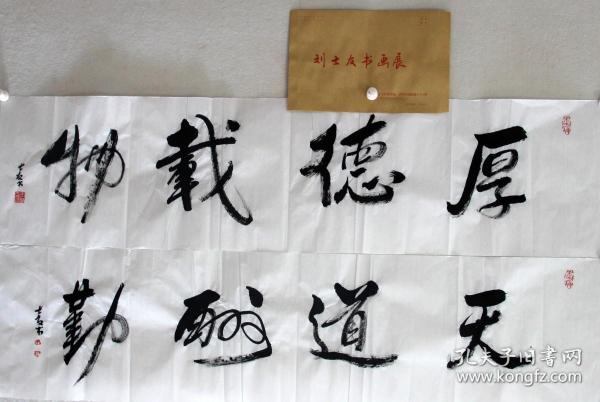 刘士友书画展
厚德载物
士友书
天道酬勤
士友书
孔夫子旧书网
www.kongfz.com